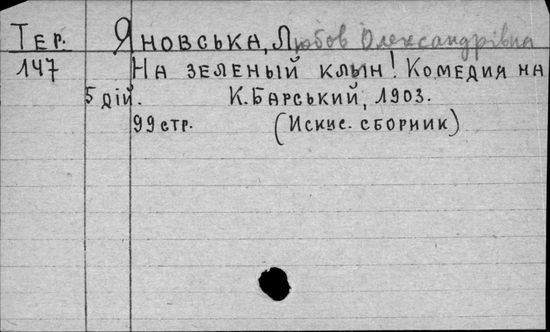 Тер. Яновська, Любов Олександрівна
147 На зеленый клын! Комедия на
5 дій. К. Барський, 1903.
99 стр. (Искус. сборник)